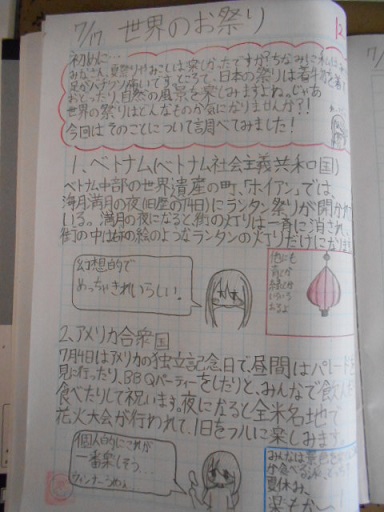 7/17 世界のお祭り
初めに…
みなさん、夏祭りやおみこしは楽しかったですか?ちなみに私は
足がパンパンで痛いです。ところで、日本の祭りは着物を着て
おどったり、自然の風景を楽しみますよね。じゃあ
世界の祭りはどんなものか気になりませんか?!
今回はそのことについて調べてみました!
1、ベトナム(ベトナム社会主義共和国)
ベトナム中部の世界遺産の町、「ホイアン」では、
毎月満月の夜(旧暦の14日)にランタン祭りが開か
いる。満月の夜になると、街の灯りは一斉に消され、
街の中は の絵のようなランタンの灯りだけになり
幻想的で
めっちゃきれいらしい。
他にも
青とか
緑とか
いろいろ
あるよ
2、アメリカ合衆国
7月4日はアメリカの独立記念日で、昼間はパレードを
見に行ったり、BBQパーティーをしたりと、みんなで飲んだり
食べたりして祝います。夜になると全米各地で
花火大会が行われて、1日をフルに楽しみます。
個人的にこれが
一番楽しそう…
ウィンナーうめぇ
みんなは
夏休み、
楽もかー!